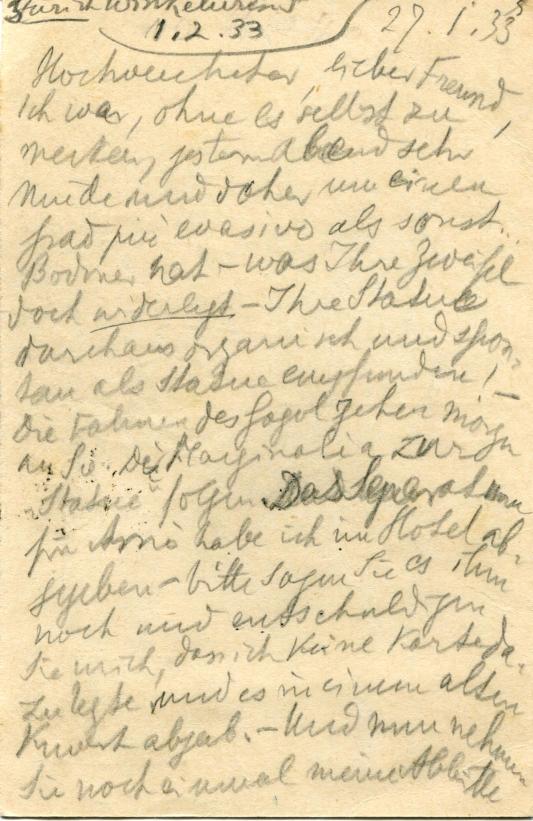 Zürich Winkelwiese 5
1.2.33
27.1.33
Hochverehrter, lieber Freund,
Ich war, ohne es selbst zu
merken, gestern Abend sehr
müde und daher um einen
grad più evasivo als sonst.
Bodmer hat – was Ihre Zweifel
doch widerlegt – Ihre Statue
durchaus organisch und spon-
tan als Statue empfunden! –
Die Fahnen des Gogol gehen morgen
an Sie. Die Marginalia zur
"Statue" folgen. Das Separatum
für Arno habe ich im Hotel ab-
gegeben – bitte sagen Sie es ihm
noch und entschuldigen
Sie mich, dass ich keine Karte da-
zu legte und es in einem alten
Kuvert abgab. – Und nun nehmen
Sie noch einmal meine Abbitte